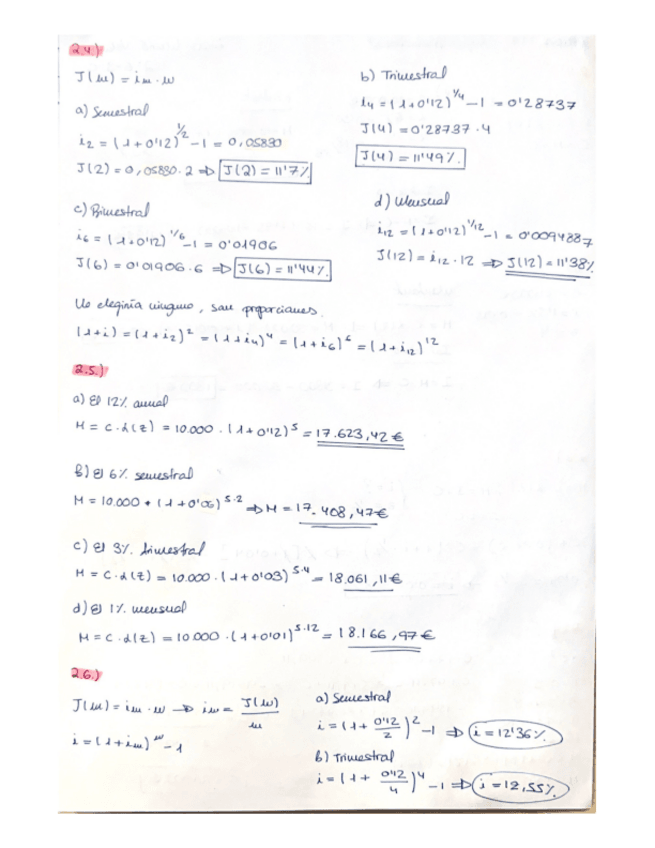 2.4.)
J(m) = im · m
a) Semestral
i2 = (1 + 0'12)^1/2 - 1 = 0,05830
J(2) = 0,05830 · 2 ⇒ J(2) = 11'7%
b) Trimestral
i4 = (1+0'12)^1/4 - 1 = 0'28737
J(4) = 0'28737 · 4
J(4) = 11'49%.
c) Bimestral
i6 = (1+0'12)^1/6 - 1 = 0'01906
J(6) = 0'01906 · 6 ⇒ J(6) = 11'44%.
d) Mensual
i12 = (1+0'12)^1/12 - 1 = 0'0094887
J(12) = i12 · 12 ⇒ J(12) = 11'38%
No elegiría ninguno, son proporcionales.
(1+i) = (1+i2)^2 = (1+i4)^4 = (1+i6)^6 = (1+i12)^12
2.5.)
a) El 12% anual
M = C · L(z) = 10.000 · (1+0'12)^5 = 17.623,42 €
b) El 6% semestral
M = 10.000 · (1+0'06)^5·2 ⇒ M = 17.408,47 €
c) El 3% trimestral
M = C · L(z) = 10.000 · (1+0'03)^5·4 = 18.061,11 €
d) El 1% mensual
M = C · L(z) = 10.000 · (1+0'01)^5·12 = 18.166,97 €
2.6.)
J(m) = im · m → im = J(m)/m
i = (1+im)^m - 1
a) Semestral
i = (1 + 0'12/2)^2 - 1 ⇒ i = 12'36%.
b) Trimestral
i = (1 + 0'12/4)^4 - 1 ⇒ i = 12,55%.